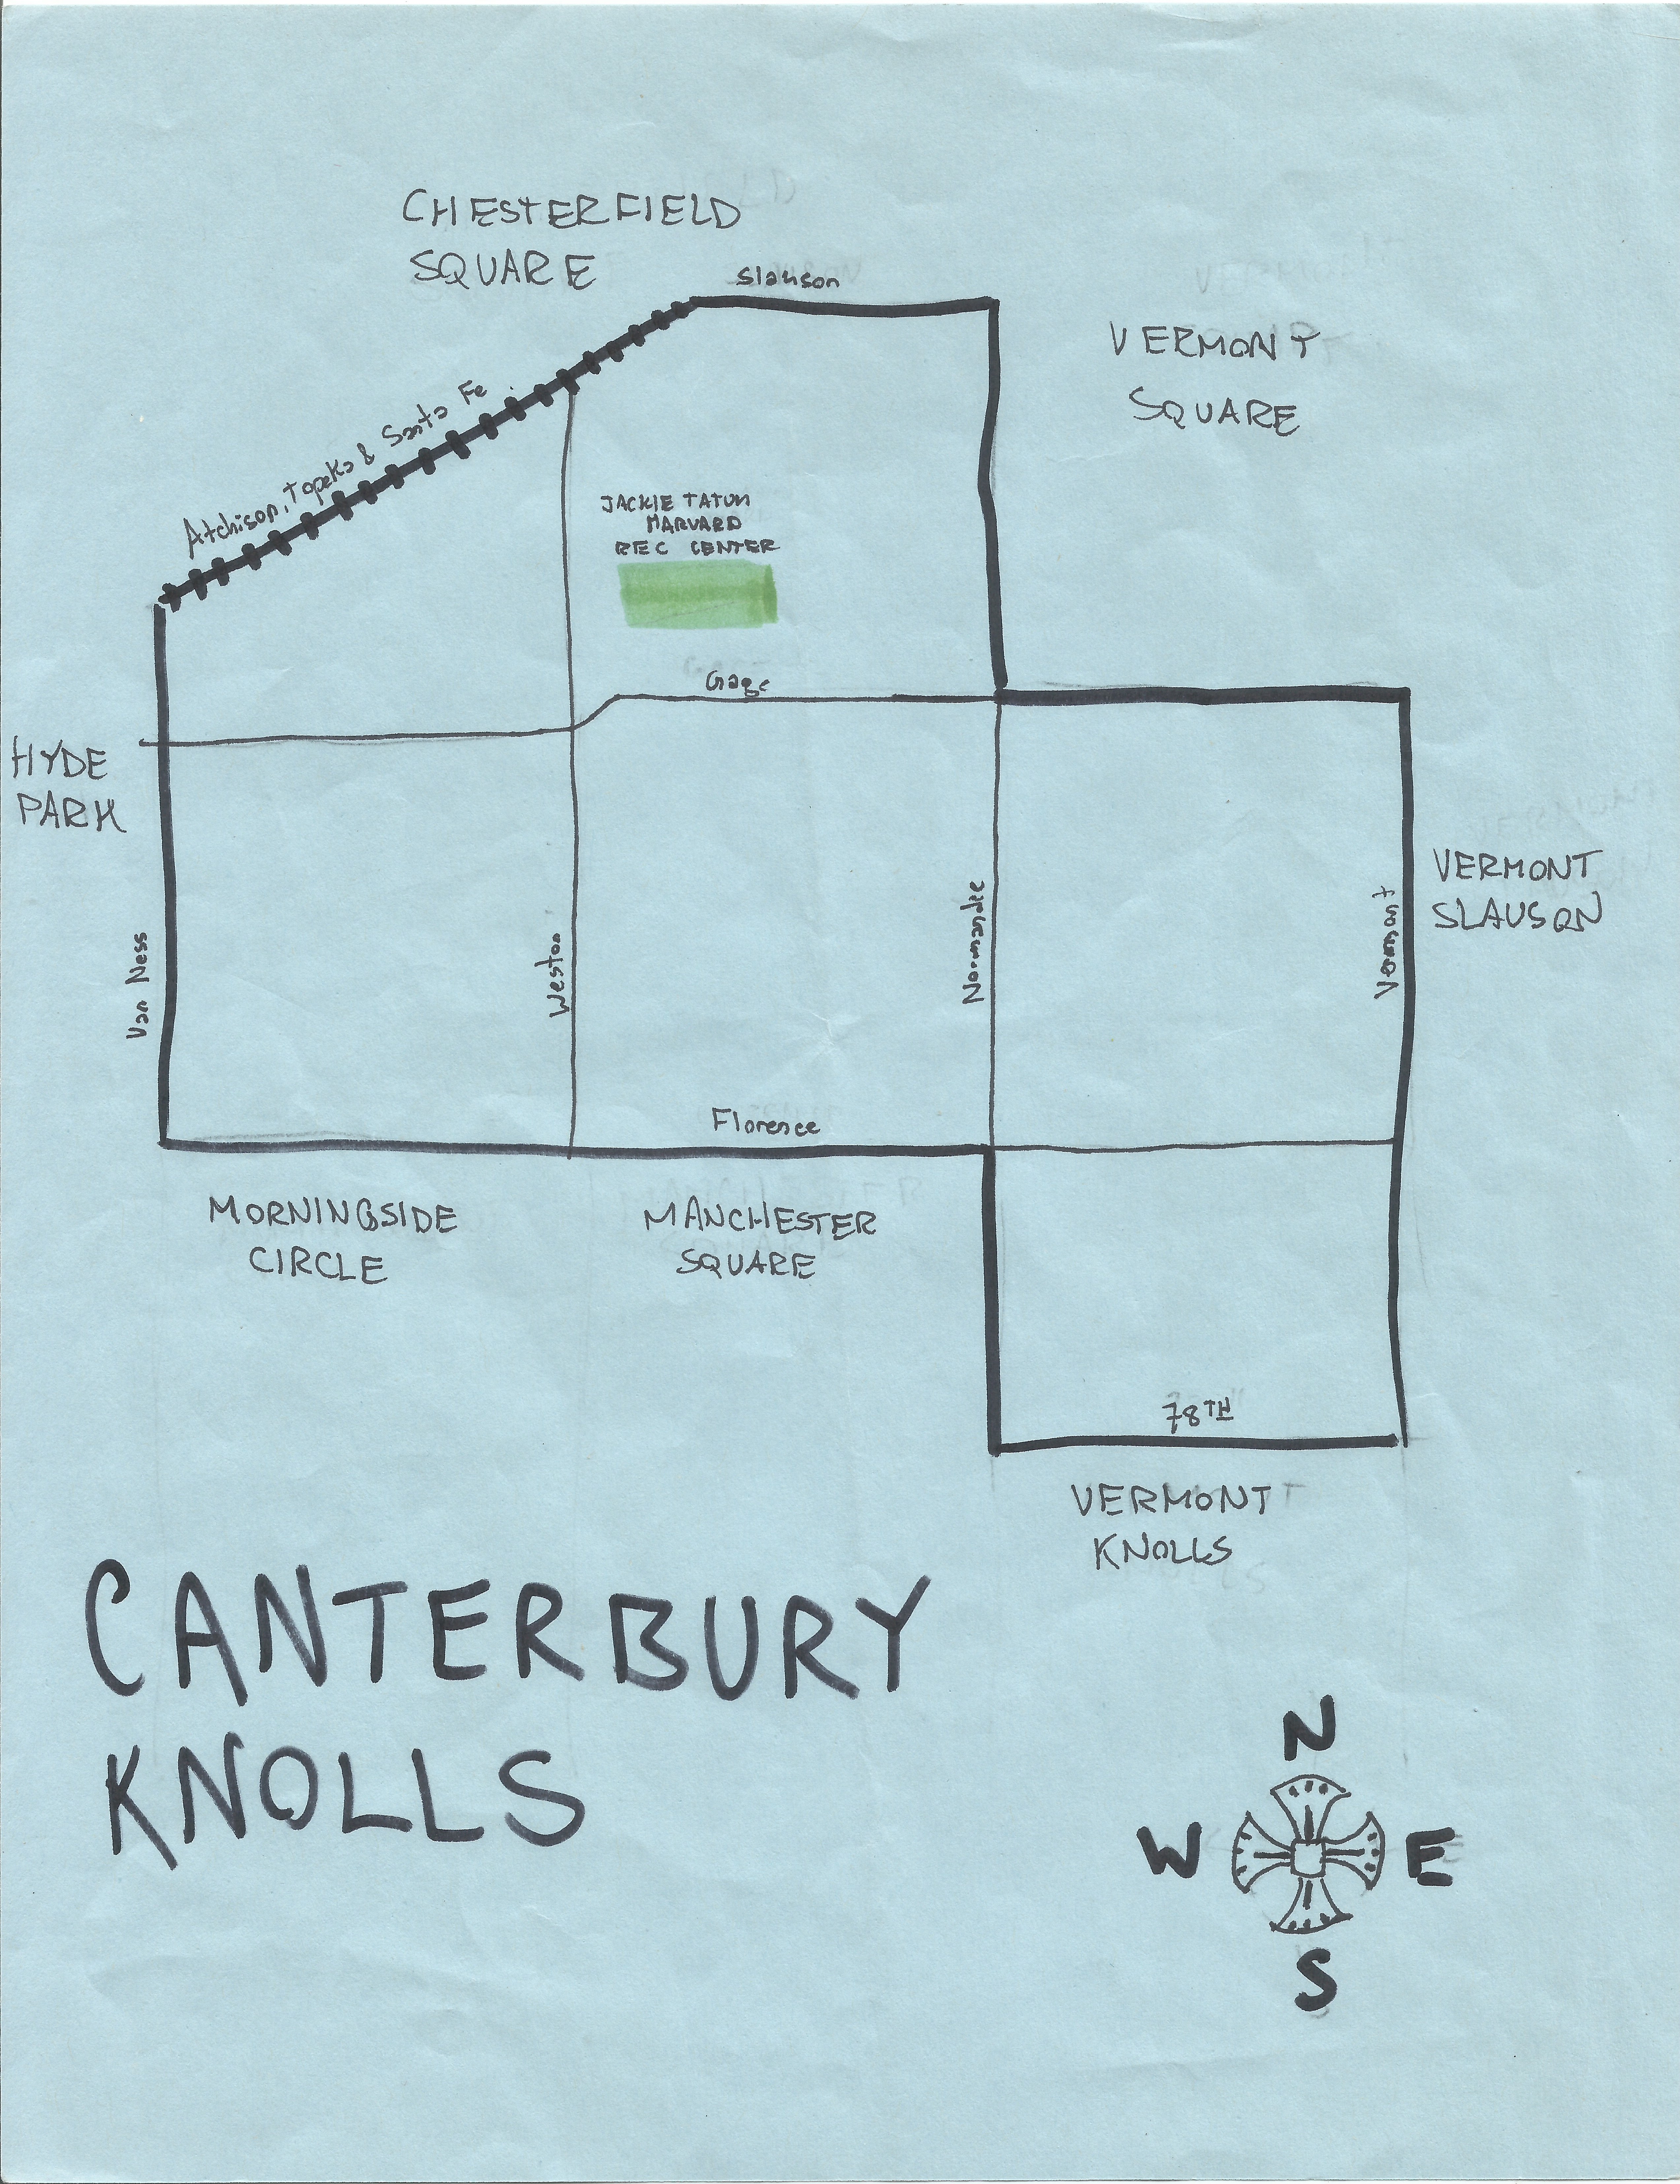 CHESTERFIELD
SQUARE
Slauson
VERMONT
SQUARE
Atchison, Topeka & Santa Fe
JACKIE TATUM
HARVARD
REC CENTER
Gage
HYDE
PARK
VERMONT
SLAUSON
Van Ness
Weston
Normandie
Vermont
Florence
MORNINGSIDE
CIRCLE
MANCHESTER
SQUARE
78TH
VERMONT
KNOLLS
CANTERBURY
KNOLLS
N
W E
S